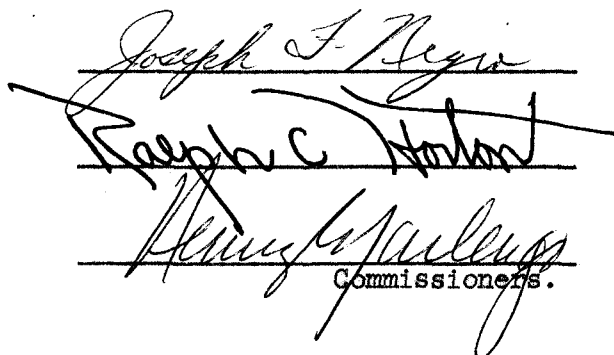 Joseph F. Negio
Ralph C Horton
Henry
Commissioners.